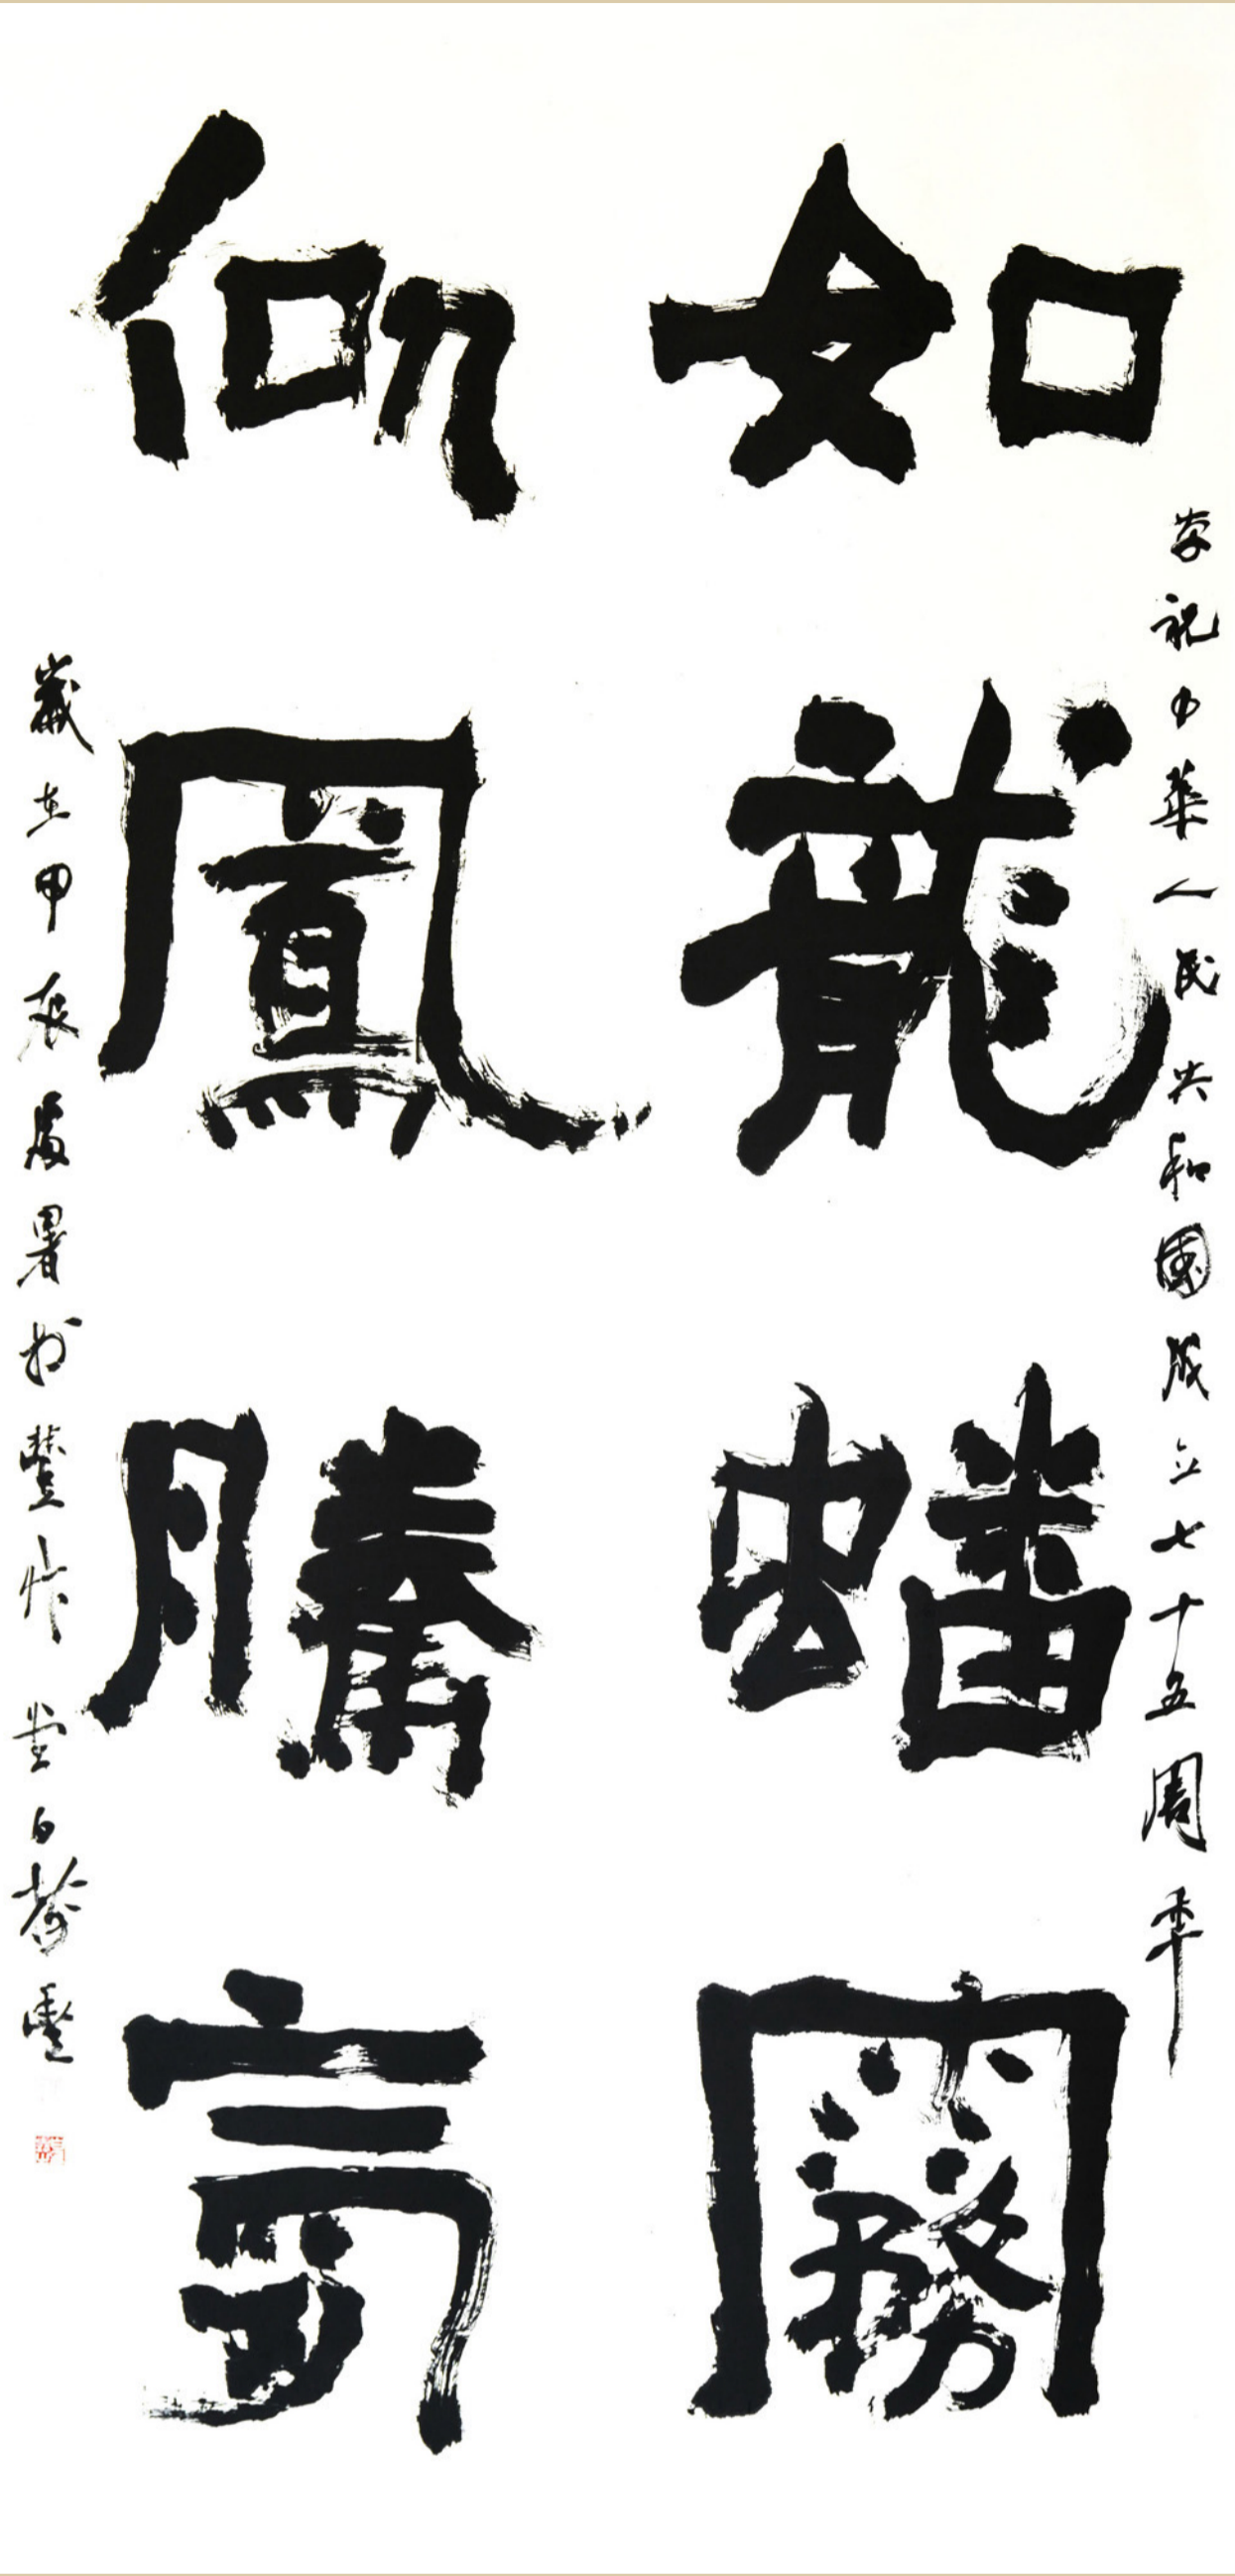 祝中華人民共和國成立七十五周年
如龍蟠霧
似鳳騰
歲在甲辰處暑於豐堂白